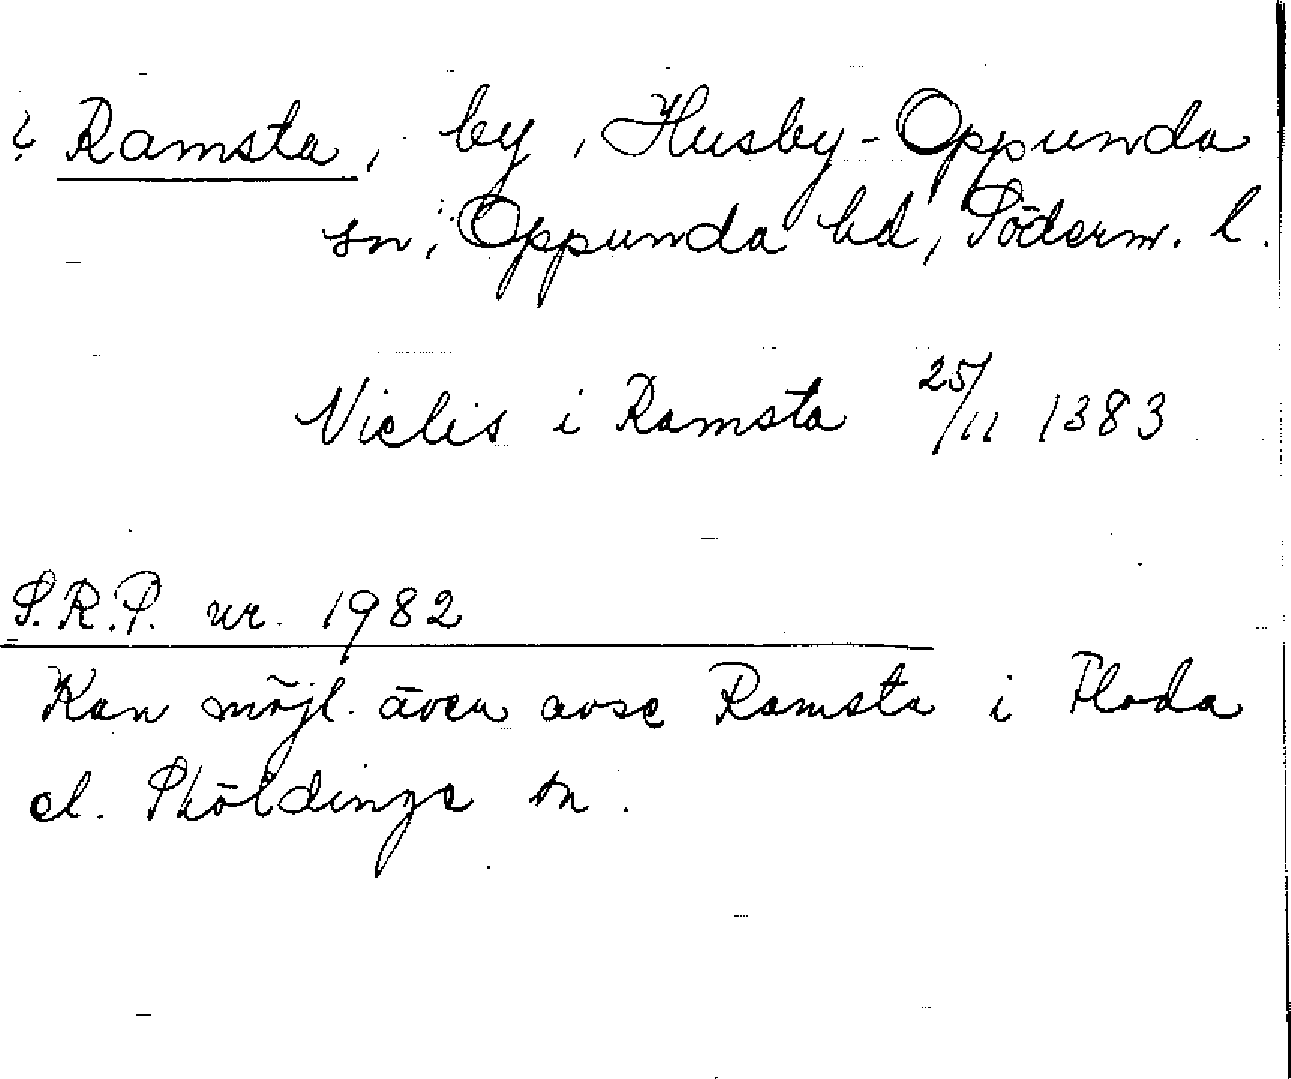 ? Ramsta, by, Husby-Oppunda
sn, Oppunda hd, Söderm. l.
Niclis i Ramsta 25/11 1383
S.R.P. nr. 1982
Kan möjl. även avse Ramsta i Floda
el. Sköldinge sn.